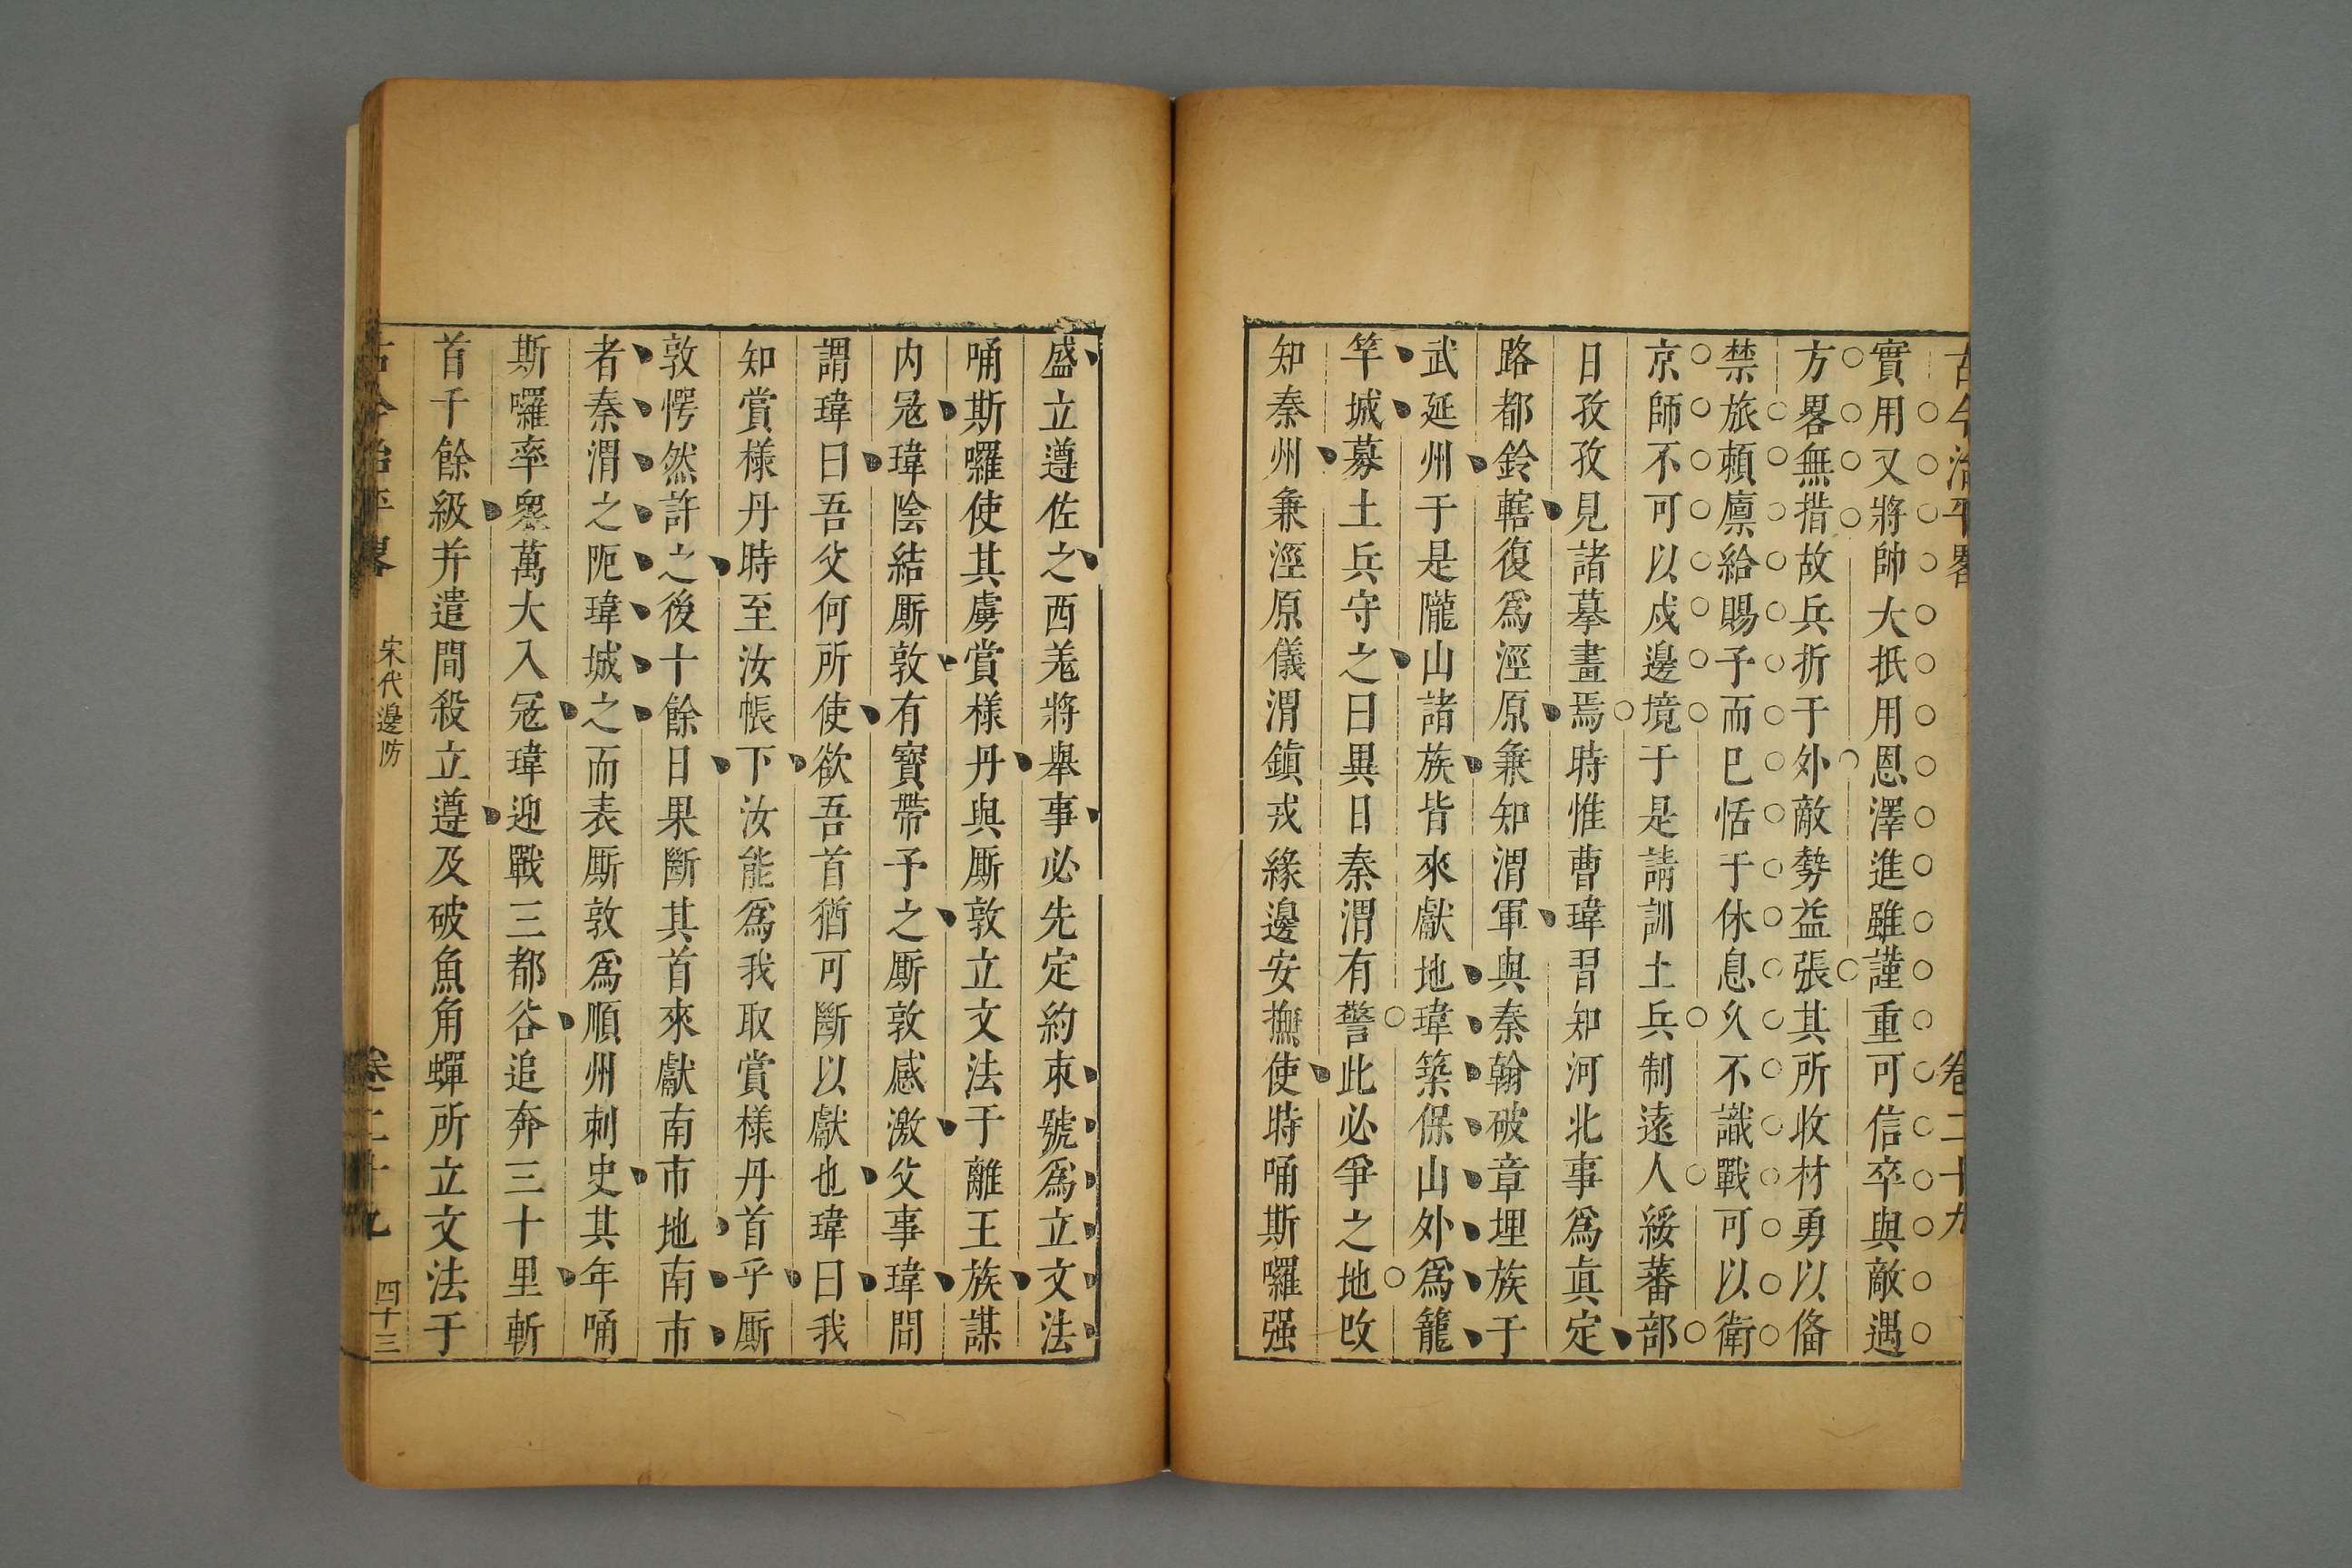 古今治平畧 卷二十九
實用又將帥大抵用恩澤進雖謹重可信卒與敵遇
方畧無措故兵折于外敵勢益張其所收材勇以俻
禁旅頼廪給賜予而巳恬于休息乆不識戰可以衛
京師不可以戍邊境于是請訓土兵制逺人綏蕃部
日孜孜見諸摹畫焉時惟曹瑋習知河北事爲眞定
路都鈴轄復爲涇原兼知渭軍與秦翰破章埋族于
武延州于是隴山諸族皆來獻地瑋築保山外爲籠
竿城募土兵守之曰異日秦渭有警此必爭之地攺
知秦州兼涇原儀渭鎮戎緣邊安撫使時唃斯囉强
盛立遵佐之西羗將舉事必先定約束號爲立文法
唃斯囉使其虜賞様丹與厮敦立文法于離王族謀
内冦瑋陰結厮敦有寳帶予之厮敦感激父事瑋問
謂瑋曰吾父何所使欲吾首猶可斷以獻也瑋曰我
知賞様丹時至汝帳下汝能爲我取賞様丹首乎厮
敦愕然許之後十餘日果斷其首來獻南市地南市
者秦渭之阨瑋城之而表厮敦爲順州刺史其年唃
斯囉率衆萬大入冦瑋迎戰三都谷追奔三十里斬
首千餘級并遣間殺立遵及破魚角蟬所立文法于
古今治平畧 宋代邊防 卷二十九 四十三